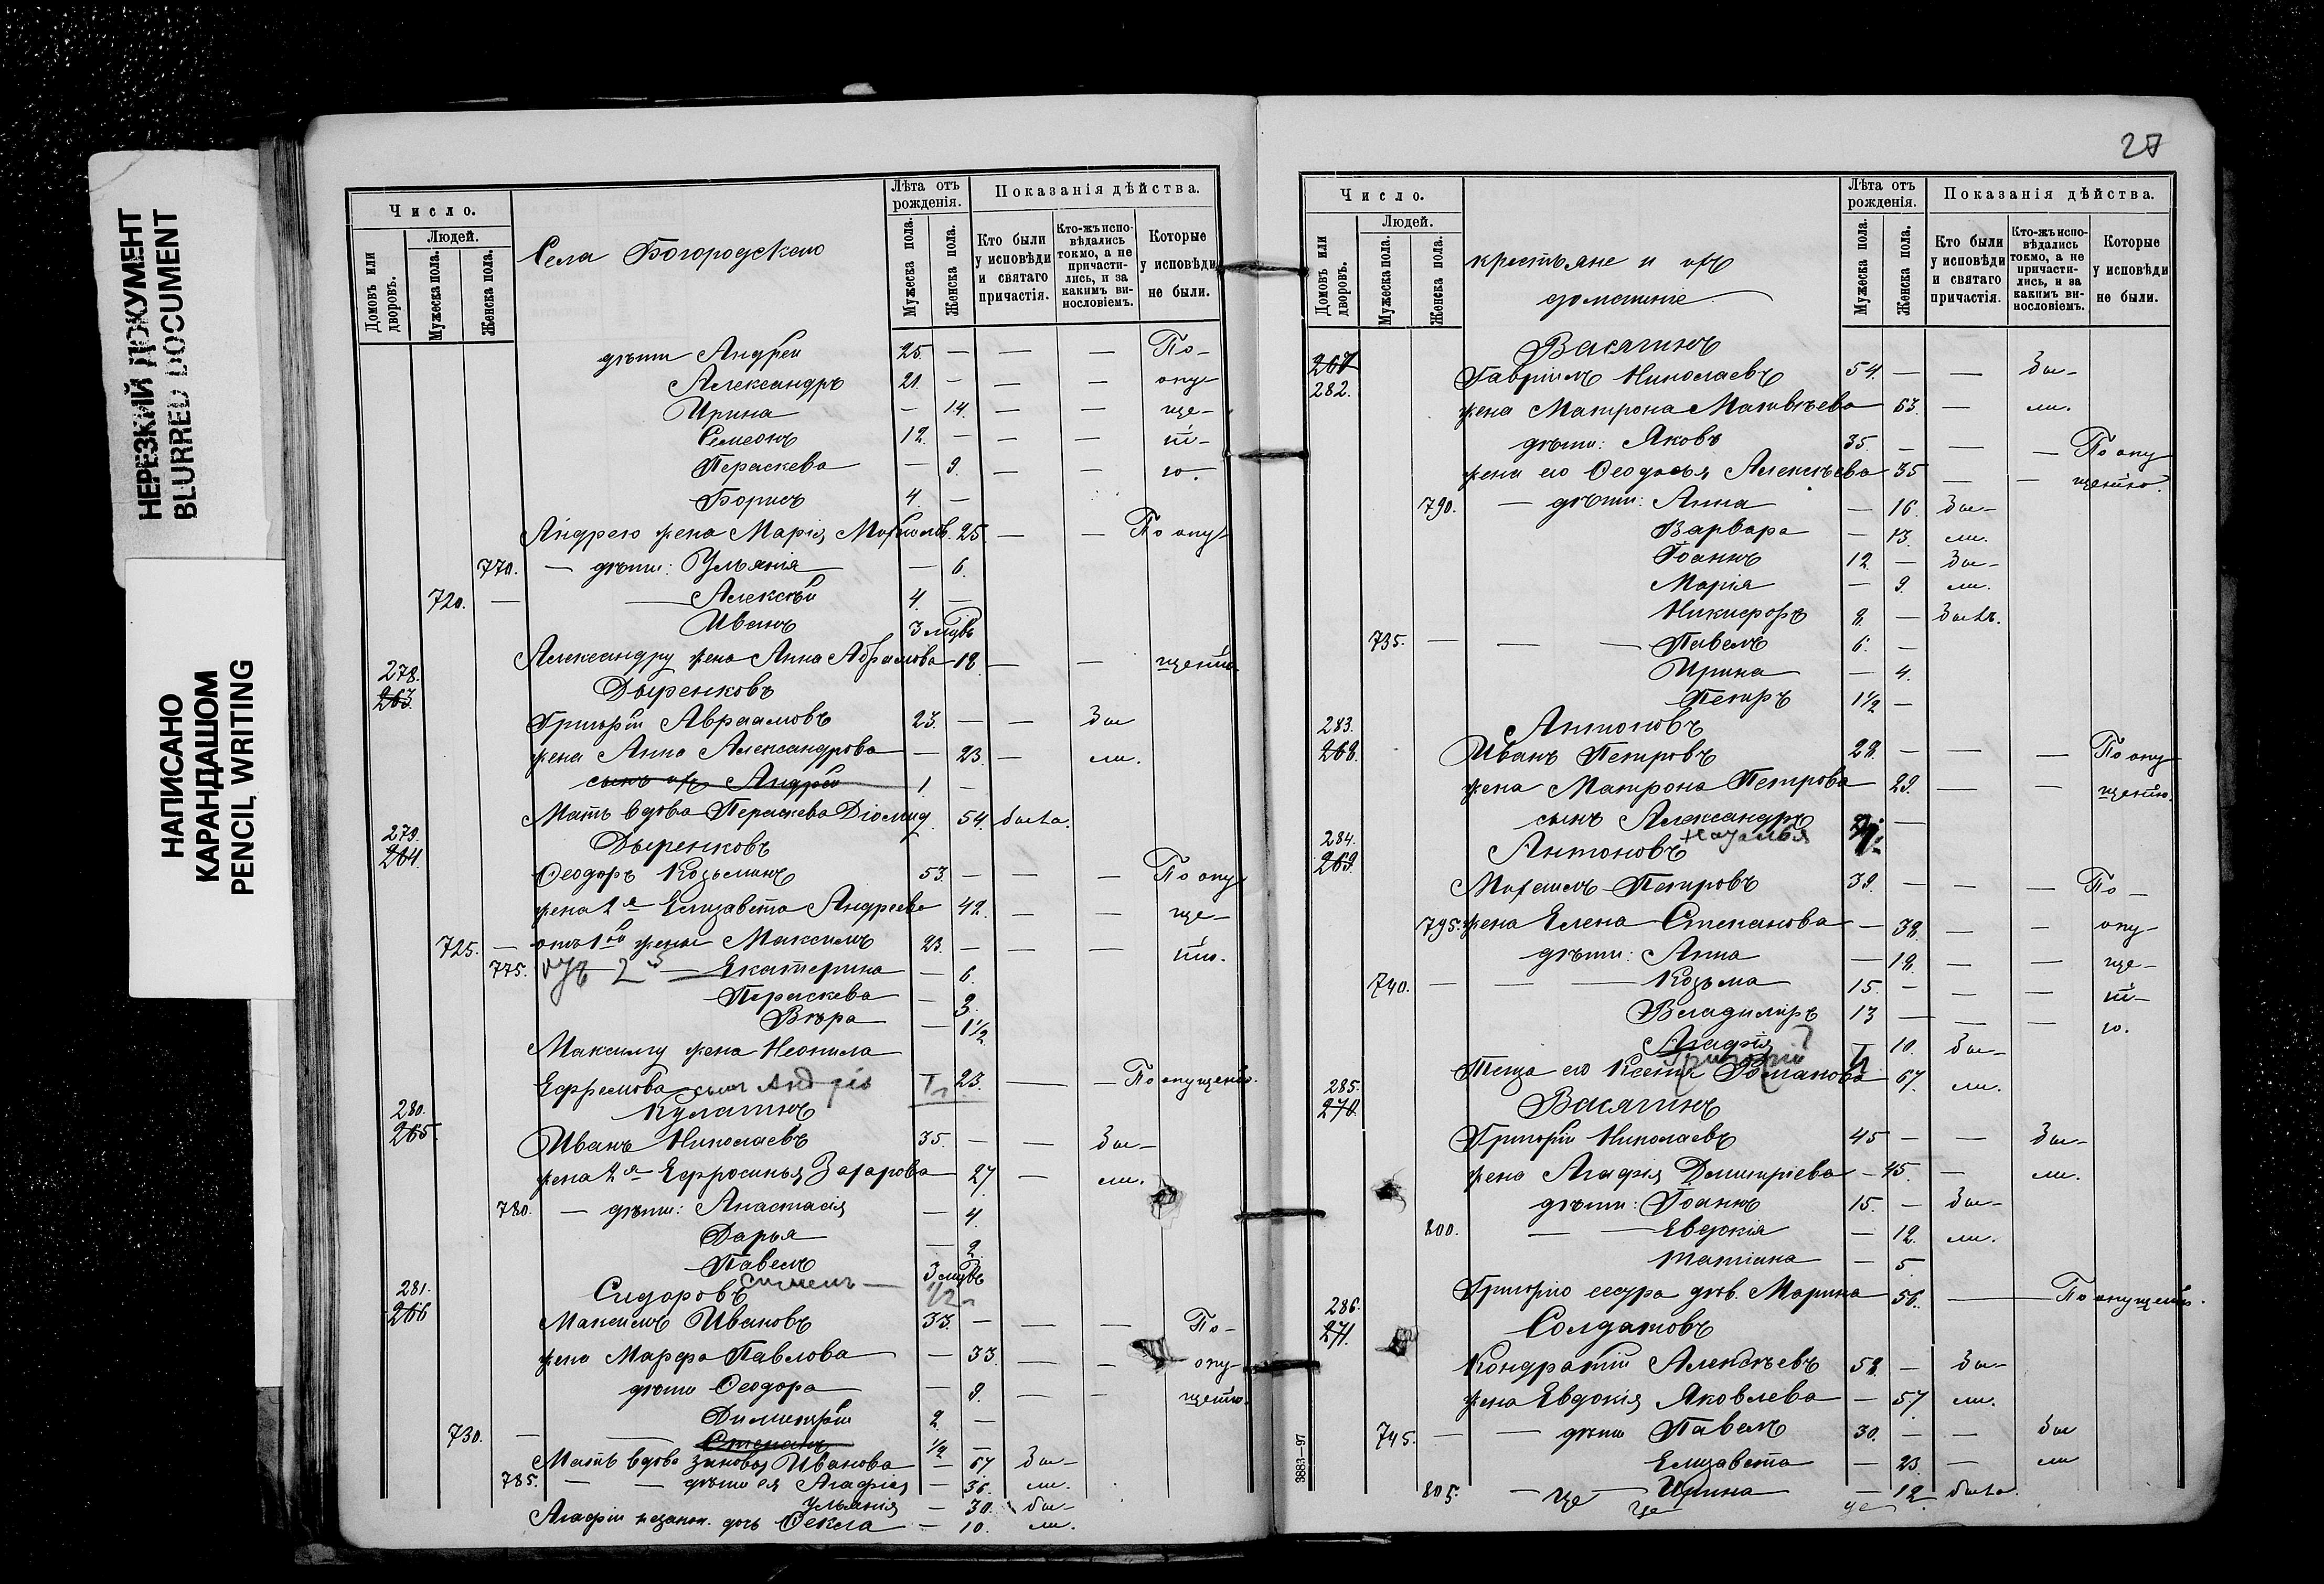 НЕРЕЗКИЙ ДОКУМЕНТ
BLURRED DOCUMENT
НАПИСАНО
КАРАНДАШОМ
PENCIL WRITING
Число.
Домовъ или дворовъ.
Людей.
Мужеска пола.
Женска пола.
Села Богородскаго
Лѣта отъ рожденія.
Мужеска пола.
Женска пола.
Показанія дѣйства.
Кто были у исповѣди и святаго причастія.
Кто-жъ исповѣдались токмо, а не причастились, и за какимъ винословіемъ.
Которые у исповѣди не были.
дѣти Андрей 25. — — — По-
Александръ 21. — — — опу-
Ирина — 14. — — ще-
Симеонъ 12. — — — ні-
Параскева — 9. — — ю.
Борисъ 4. —
Андрею жена Марія 25 — — По опу
770. — дѣти: Ульянія — 6.
720. — — Алексѣй 4. —
Иванъ 3 мцвъ
Александру жена Анна Абрамова 18. — — щенію.
278.
263. Дыренковъ
Григорій Авраамовъ 23. — — Бы
жена Анна Александрова — 23. — ли.
сынъ ихъ Андрей 1 —
Мать вдова Параскева Діомид. 54. была.
279.
264. Дыренковъ
Ѳеодоръ Козьминъ 53. — — — По опу
жена 2я Елизавета Андреева 42. — — ще-
725. — отъ 1ой жены Максимъ 23. — — — нію.
775. отъ 2й — Екатерина — 6.
Параскева — 3.
Вѣра — 1½
Максиму жена Неонила
Ефремова сынъ Андрей 23. — — По опущенію.
280.
265. Кулагинъ
Иванъ Николаевъ 35. — — Бы-
жена 2я Ефросинья Захарова 27. — ли.
780. — дѣти: Анастасія — 4.
Дарья — 2.
Павелъ 3 мцвъ
281.
266 Сидоровъ
Максимъ Ивановъ 33. — — — По-
жена Марфа Павлова — 33. — — опу-
дѣти Ѳеодора — 9. — — щенію.
Димитрій 2. —
730. — — Степанъ ½ —
Мать вдова Зиновья Иванова — 67 Бы-
785. — — дѣти ея Агафія — 36. ли.
Ульянія — 30. бы-
Агафіи незакон. дочь Ѳекла — 10. ли.
27
Число.
Домовъ или дворовъ.
Людей.
Мужеска пола.
Женска пола.
крестьяне и ихъ
домашніе
Лѣта отъ рожденія.
Мужеска пола.
Женска пола.
Показанія дѣйства.
Кто были у исповѣди и святаго причастія.
Кто-жъ исповѣдались токмо, а не причастились, и за какимъ винословіемъ.
Которые у исповѣди не были.
267
282. Васягинъ
Гавріилъ Николаевъ 54. — — Бы-
жена Матрона Матвѣева 53. — ли.
дѣти: Яковъ 35. — — — По опу
жена его Ѳеодосья Алексѣева 35 — — щенію.
790. — дѣти: Анна — 16. Бы-
Варвара — 13. ли.
Іоаннъ 12. — Бы-
Марія — 9. ли.
Никифоръ 8. — Былъ.
735. — — — Павелъ 6. —
Ирина — 4.
Петръ 1½ —
283.
268. Антоновъ
Иванъ Петровъ 28. — — — По опу
жена Матрона Петрова 29. — — щенію.
сынъ Александръ —
284.
269. Антоновъ
Михаилъ Петровъ 39. — — — По —
795. жена Елена Степанова — 38. — — опу-
дѣти: Анна — 18. — — ще-
740. — — — Козьма 15. — — — ні-
Владиміръ 13 — — — ю.
Агафія — 10. Бы-
Теща его Ксенія Романова 67. ли.
285.
270. Васягинъ
Григорій Николаевъ 45 — — Бы-
жена Агафія Димитріева — 45. — ли.
дѣти: Іоаннъ 15. — Бы-
800. — — Евдокія — 12. ли.
Татіана — 5
Григорію сестра дѣв. Марина 56. — — По опущенію.
286.
271. Солдатовъ
Кондратій Алексѣевъ 58. — Бы-
жена Евдокія Яковлева — 57. ли.
745. — — дѣти Павелъ 30. — — Бы
Елизавета — 23. — ли
805. — Ирина — 12. была.
3883—97